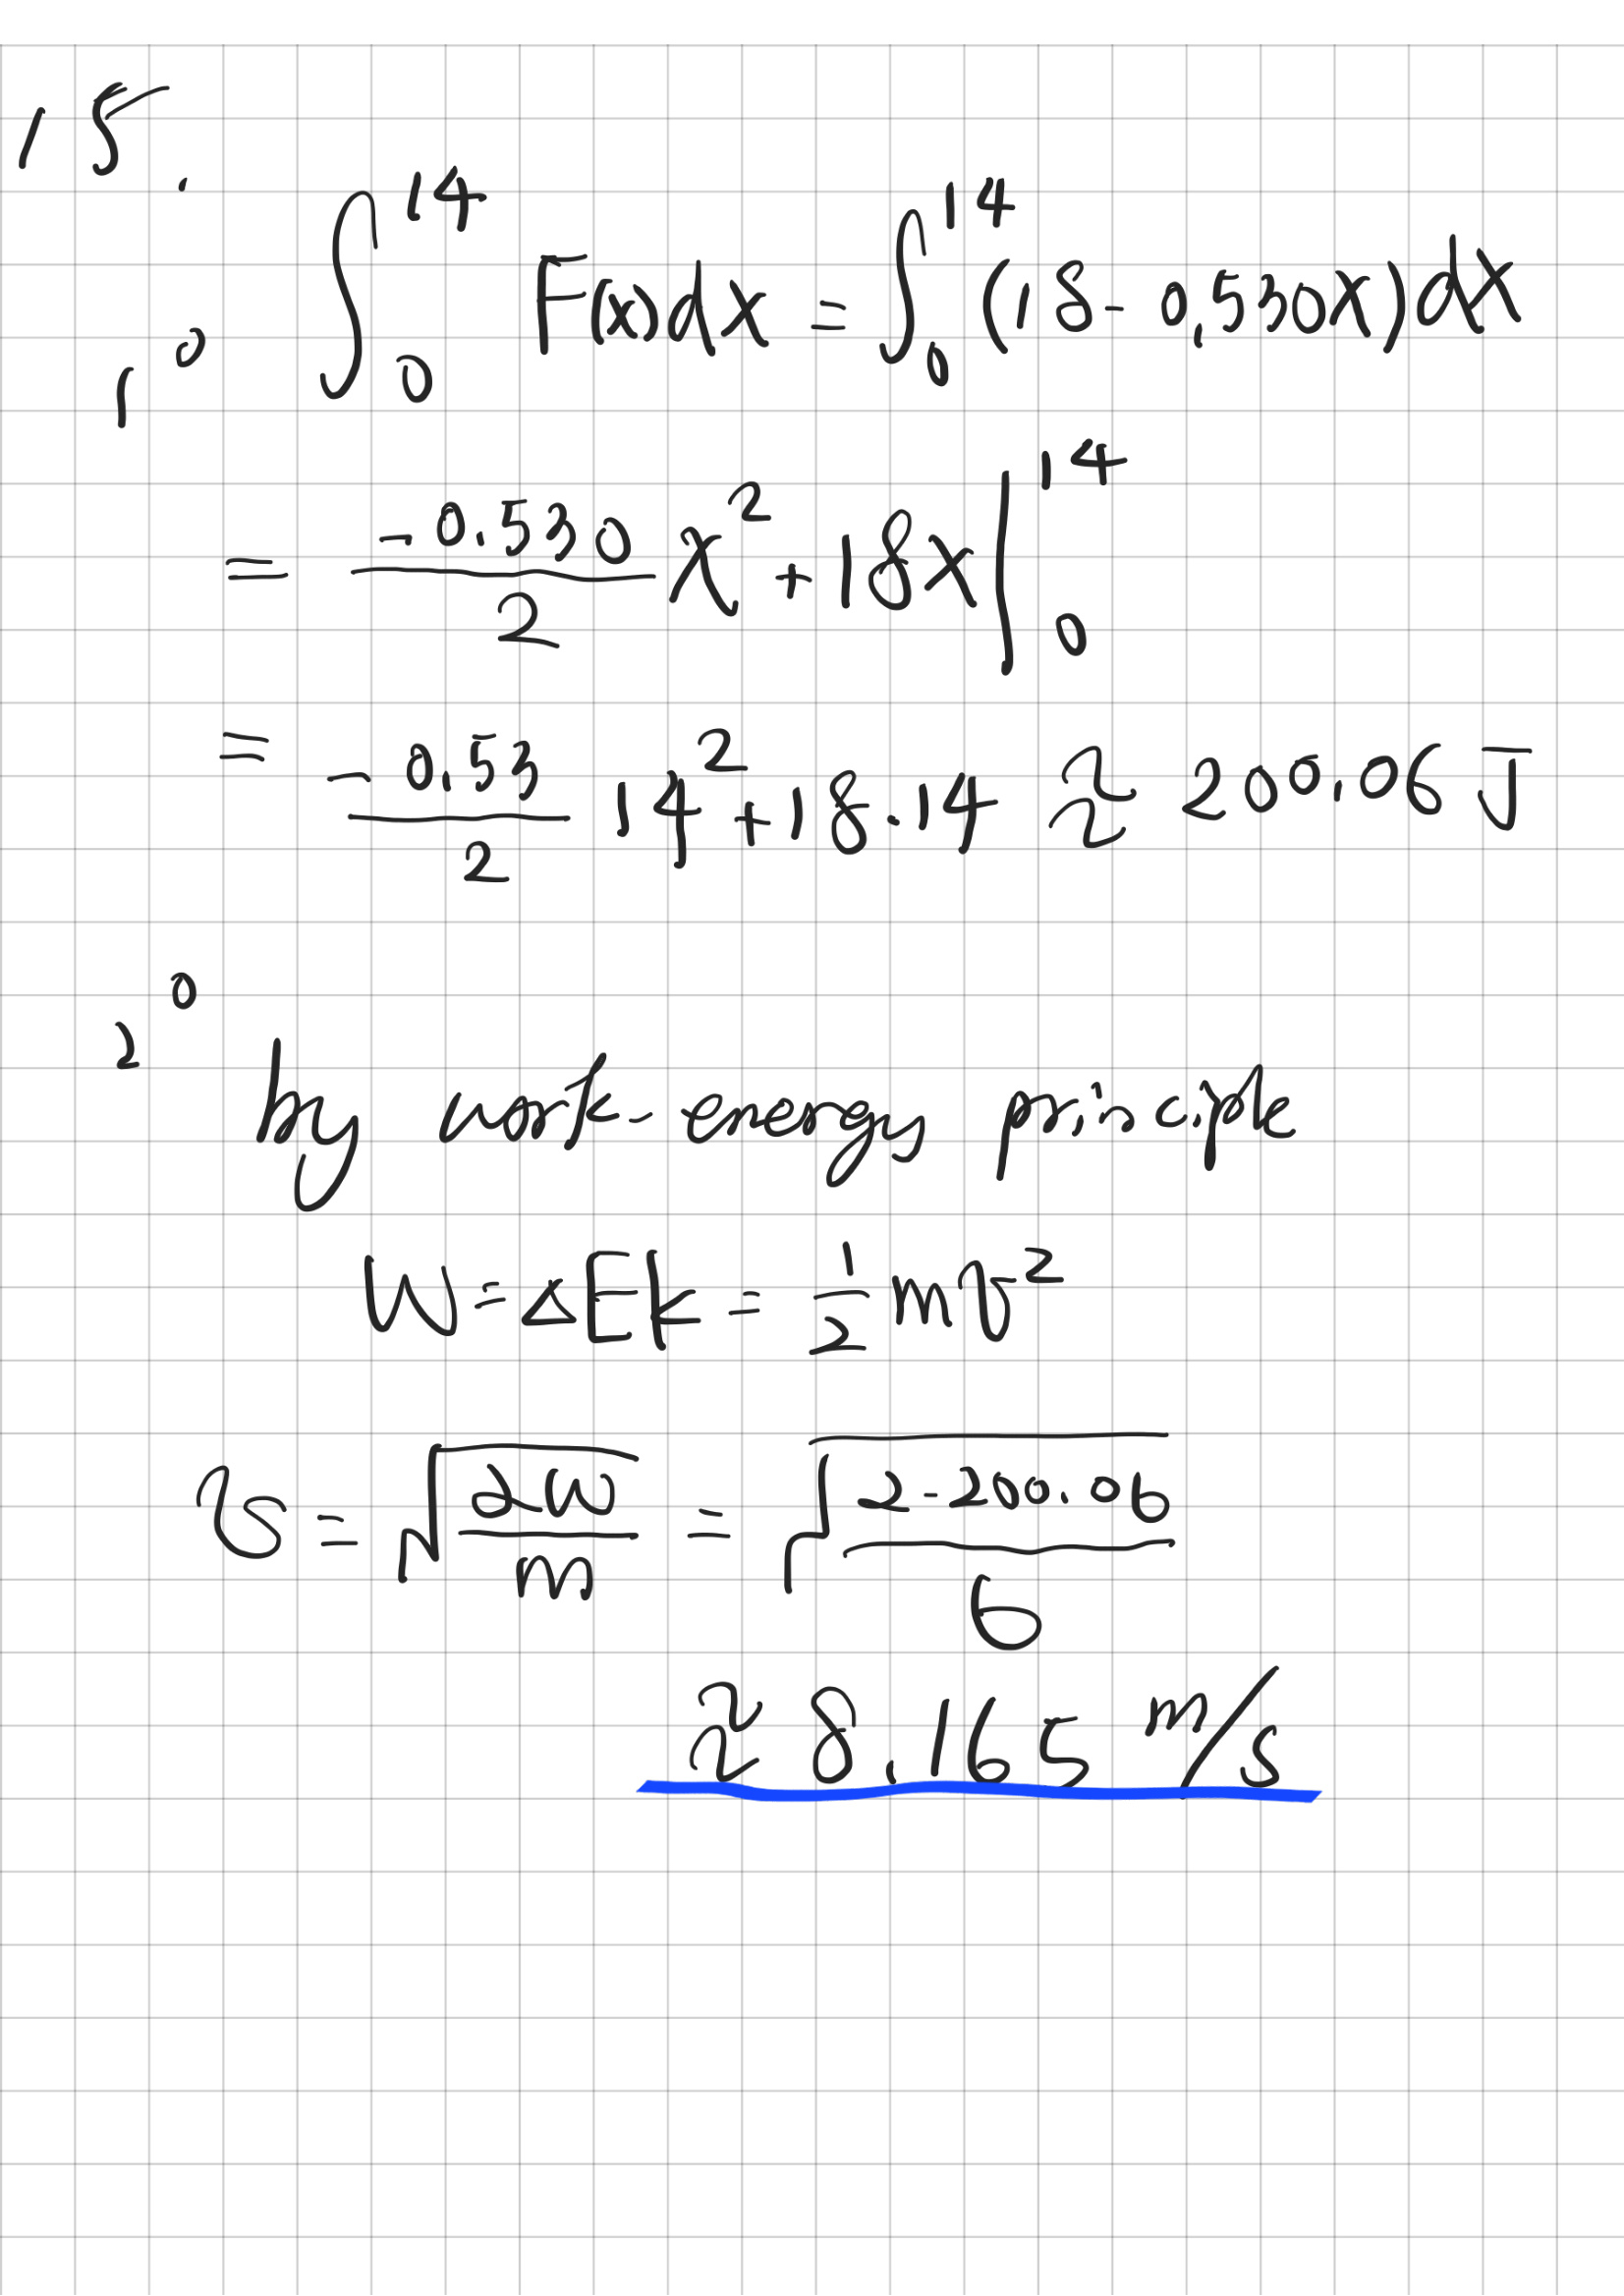 15.
1° ∫₀¹⁴ F(x)dx = ∫₀¹⁴ (18 - 0.530x)dx
= -0.530/2 x² + 18x |₀¹⁴
= -0.53/2 14² + 18·14 ≈ 200.06 J
2° by work-energy principle
W = ΔEk = 1/2 mv²
v = √(2W/m) = √(2·200.06/6)
≈ 8.165 m/s